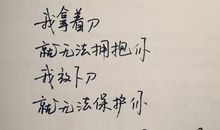 我拿着刀
就无法拥抱你
我放下刀
就无法保护你